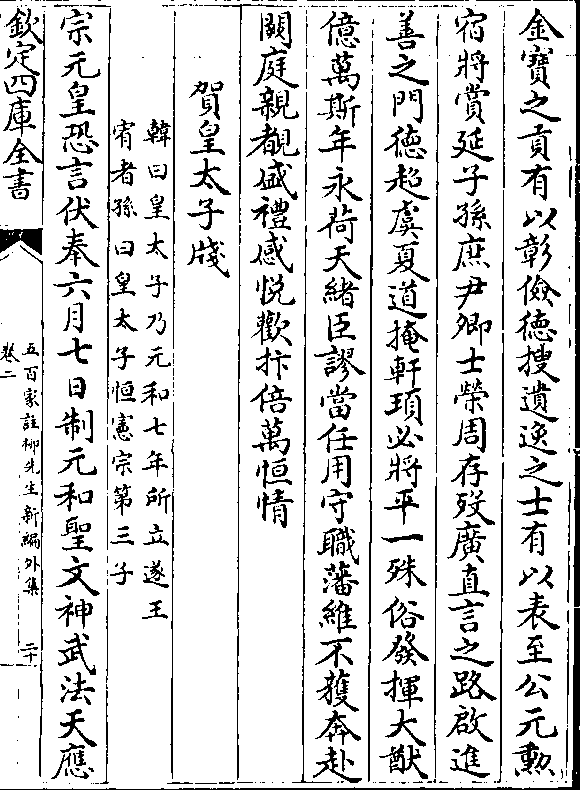 金寶之貢有以彰儉德搜遺逸之士有以表至公元勲
宿將賞延子孫庶尹卿士榮周存歿廣直言之路啟進
善之門德超虞夏道掩軒頊必將平一殊俗發揮大猷
億萬斯年永荷天緒臣謬當任用守職藩維不獲奔赴
闕庭親覩盛禮感悦歡抃倍萬恒情
賀皇太子牋
韓曰皇太子乃元和七年所立遂王
宥者孫曰皇太子恒憲宗第三子
宗元皇恐言伏奉六月七日制元和聖文神武法天應
欽定四庫全書
五百家註柳先生新編外集
卷二
二十